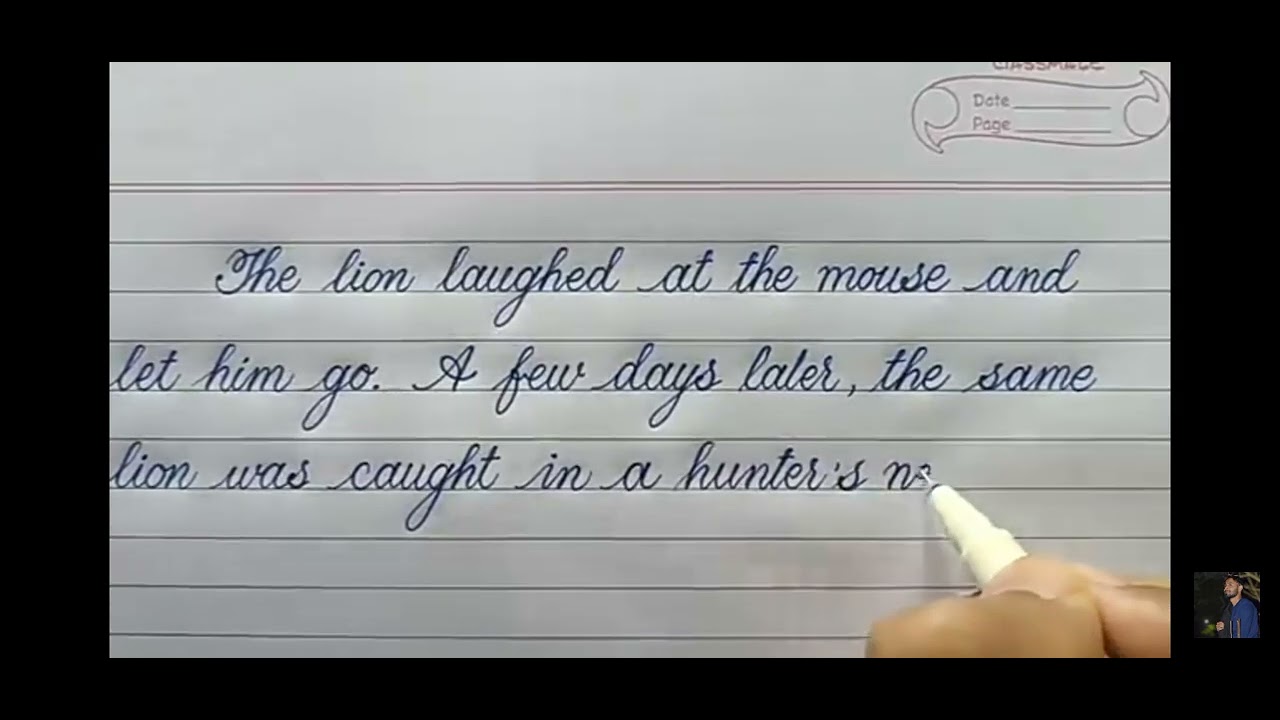 classmate
Date
Page
The lion laughed at the mouse and
let him go. A few days later, the same
lion was caught in a hunter's